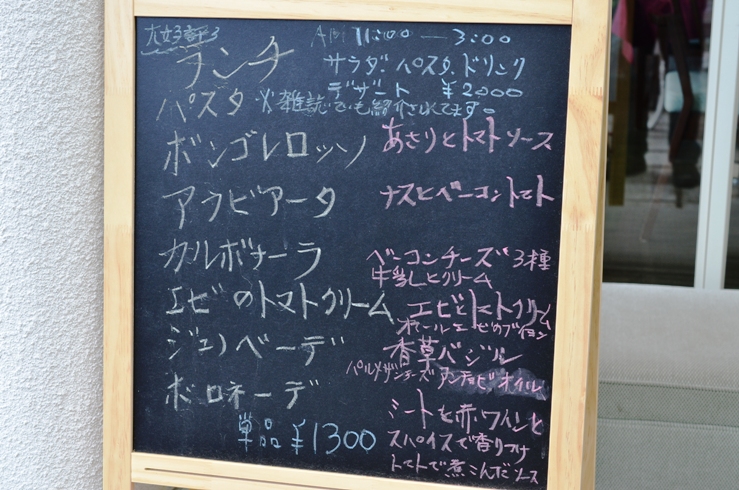 大好評
ランチ AM 11:00 — 3:00
サラダ、パスタ、ドリンク
デザート ¥2000
パスタ ※雑誌でも紹介されてます。
ボンゴレロッソ あさりとトマトソース
アラビアータ ナスとベーコントマト
カルボナーラ ベーコンチーズ3種
牛乳しとクリーム
エビのトマトクリーム エビとトマトクリーム
オマールエビのブイヨン
ジェノベーデ 香草バジル
パルメザンチーズ アンチョビオイル
ボロネーデ ミートと赤ワインと
スパイスで香りつけ
トマトで煮こんだソース
単品¥1300